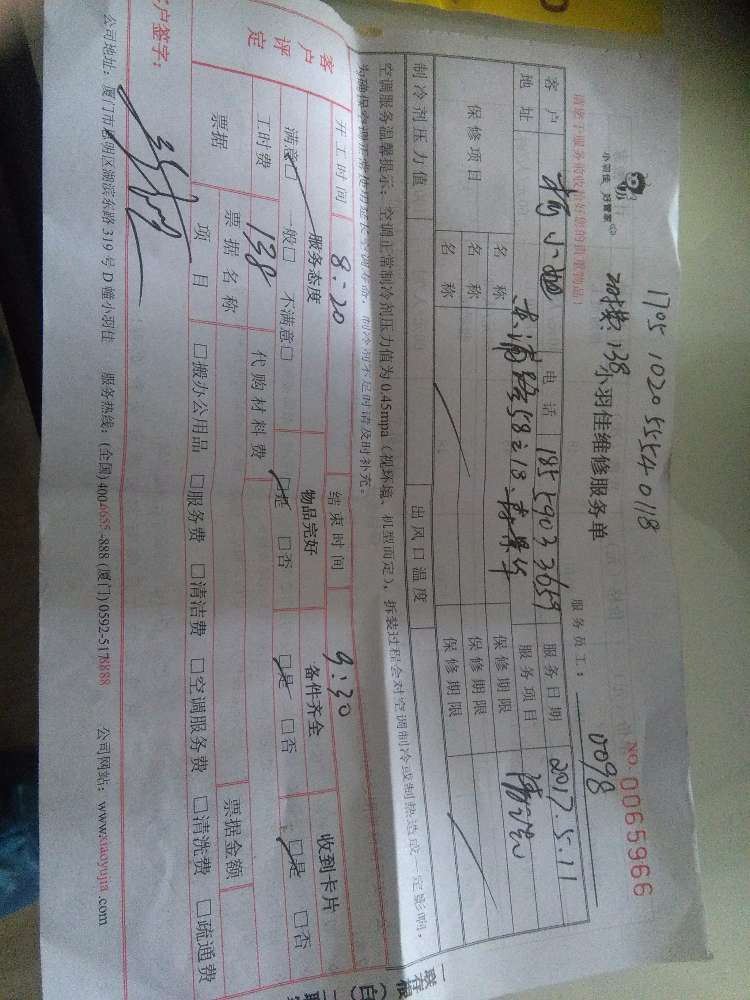 1705 1020 5554 0118
小羽佳 好管家
138 小羽佳维修服务单
NO. 0065966
服务员工: 0098
请您于服务前收拾好您的贵重物品!
客户 杨小姐 电话 185 5903 3659 服务日期 2017.5.11
地址 服务项目
保修项目 名称 保修期限
名称 保修期限
名称 保修期限
制冷剂压力值 出风口温度
空调服务温馨提示: 空调正常制冷剂压力值为0.45mpa (视环境、机型而定), 拆装过程会对空调制冷或制热造成一定影响,
为确保空调正常使用延长空调寿命, 制冷剂不足时请及时补充。
开工时间 8:20 结束时间 9:30
客户评定 服务态度 物品完好 备件齐全 收到卡片
满意□ 一般□ 不满意□ □是 □否 □是 □否 □是 □否
工时费 138 代购材料费
票据 票据名称 票据金额
项目 □搬办公用品 □服务费 □清洁费 □空调服务费 □清洗费 □疏通费
客户签字:
公司地址: 厦门市思明区湖滨东路319号D幢小羽佳 服务热线: (全国) 400-4655-888 (厦门) 0592-5178888 公司网站: www.xiaoyujia.com